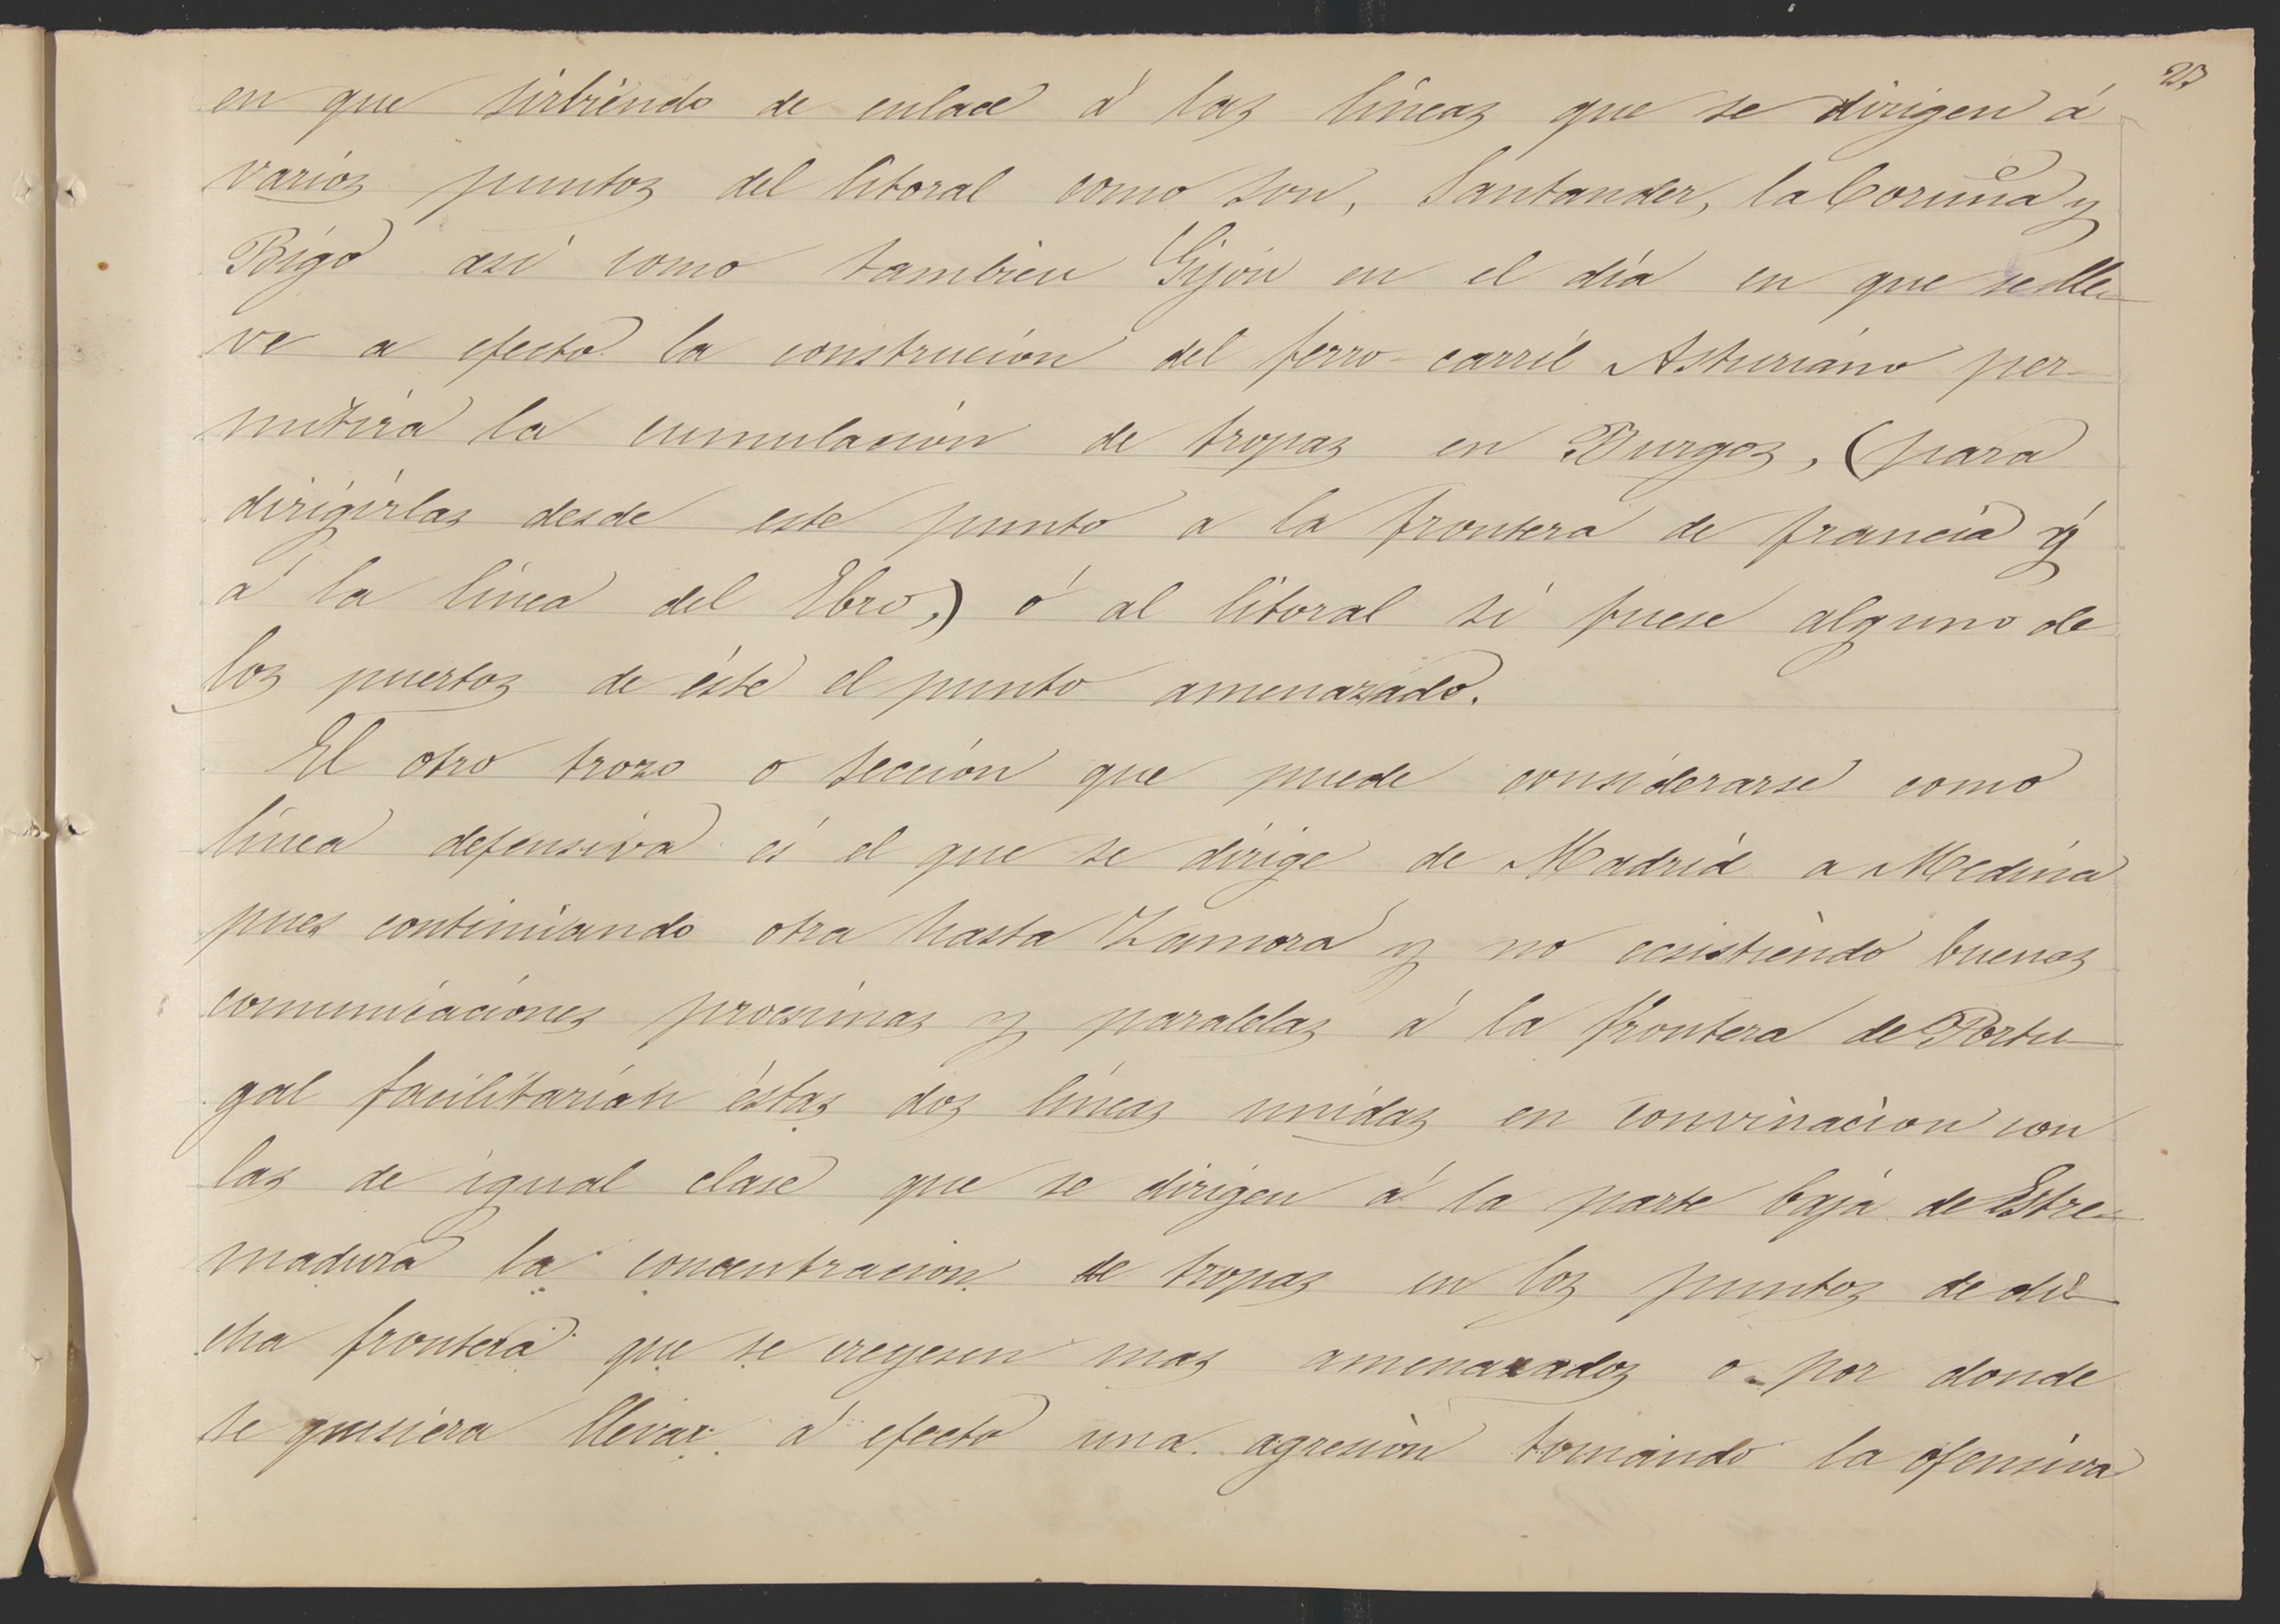 23
en que sirbiendo de enlace á las líneas que se dirigen á
varios puntos del litoral como son, Santander, la Coruña y
Bigo asi como tambien Gijón en el día en que se lle-
ve a efecto la construción del ferro-carril Asturiano per-
mitira la cumulación de tropas en Burgos, (para
dirigirlas desde este punto a la frontera de francia y
á la línea del Ebro,) ó al litoral si fuese alguno de
los puertos de éste el punto amenazado.
El otro trozo o sección que puede considerarse como
línea defensiva es el que se dirige de Madrid a Medina
pues continuando otra hasta Zamora y no ecsistiendo buenas
comunicaciones procsimas y paralelas á la frontera de Portu-
gal facilitarían éstas dos líneas unidas en convinacion con
las de igual clase que se dirigen á la parte baja de Estre-
madura la concentracion de tropas en los puntos de di-
cha frontera que se creyesen mas amenazados o por donde
se quisiera llevar á efecto una agresión tomando la ofensiva